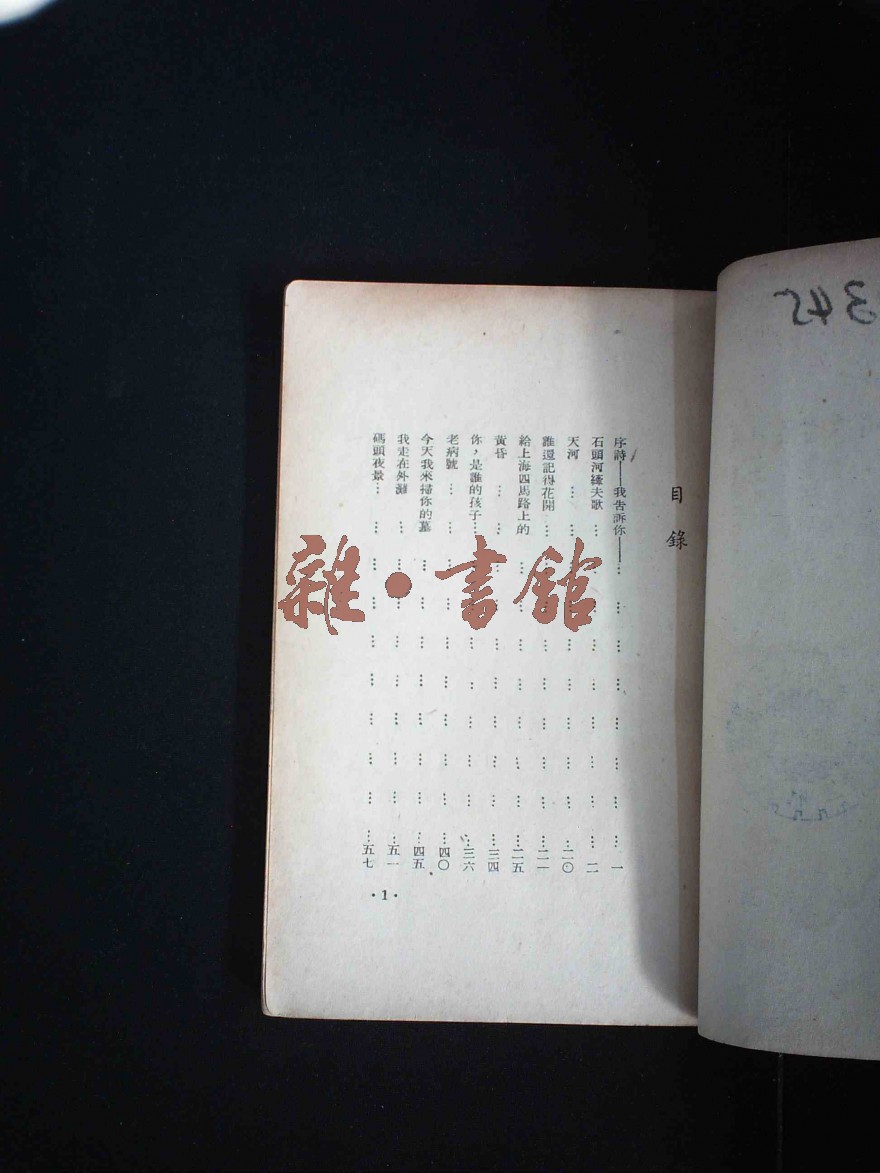 目錄
序詩——我告訴你——… … … … … … … … 一
石頭河縴夫歌 … … … … … … … … 二
天河 … … … … … … … … … 二〇
誰還記得花開 … … … … … … … … 二一
給上海四馬路上的 … … … … … … … … 二五
黃昏 … … … … … … … … … … 三四
你，是誰的孩子… … … … … … … … 三六
老病號 … … … … … … … … … … 四〇
今天我來掃你的墓 … … … … … … … … 四五
我走在外灘 … … … … … … … … … 五一
碼頭夜景… … … … … … … … … … 五七
·1·
雜·書館
245